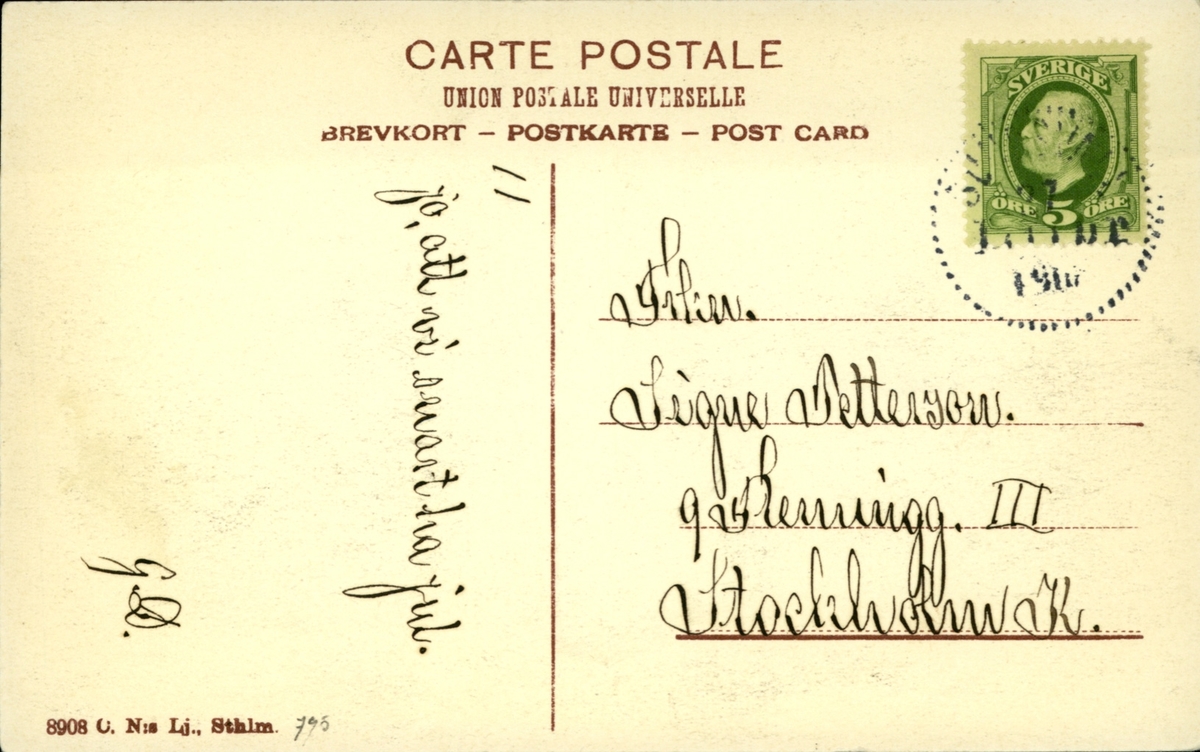 CARTE POSTALE
UNION POSTALE UNIVERSELLE
BREVKORT – POSTKARTE – POST CARD
SVERIGE
ÖRE 5 ÖRE
27
190
11
ja, att vi snart ha jul.
G.
Frkn.
Signe Petterson.
9 Flemingg. III
Stockholm K.
8908 C. N:s Lj., Sthlm. 795